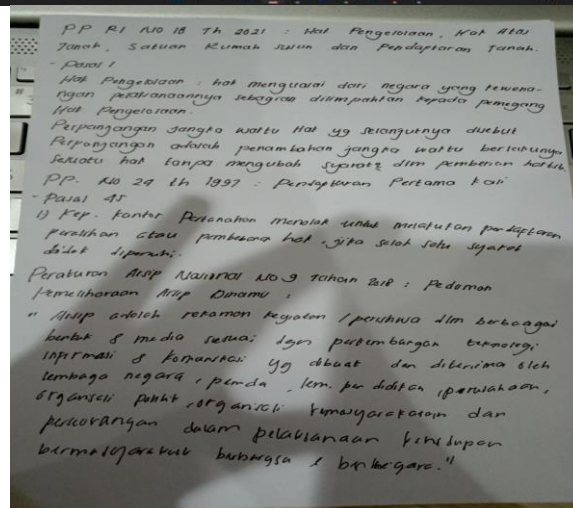 PP RI No 18 Th 2021 : Hak Pengelolaan, Hak Atas
Tanah, Satuan Rumah Susun dan Pendaftaran Tanah.
- Pasal 1
Hak Pengelolaan : hak menguasai dari negara yang kewena-
ngan pelaksanaannya sebagian dilimpahkan kepada pemegang
Hak Pengelolaan.
Perpanjangan Jangka waktu Hak yg selanjutnya disebut
Perpanjangan adalah penambahan jangka waktu berlakunya
sesuatu hak tanpa mengubah syarat2 dlm pemberian hak tsb.
PP. No 24 th 1997 : Pendaftaran Pertama kali
- Pasal 45
1) Kep. Kantor Pertanahan menolak untuk melakukan pendaftaran
peralihan atau pembebanan hak, jika salah satu syarat
tidak dipenuhi.
Peraturan Arsip Nasional No 9 Tahun 2018 : Pedoman
Pemeliharaan Arsip Dinamis,
" Arsip adalah rekaman kegiatan / peristiwa dlm berbagai
bentuk & media sesuai dgn perkembangan teknologi
informasi & komunikasi yg dibuat dan diterima oleh
lembaga negara, pemda, lem. pendidikan, perusahaan,
organisasi politik, organisasi kemasyarakatan dan
perseorangan dalam pelaksanaan kehidupan
bermasyarakat berbangsa & bernegara."